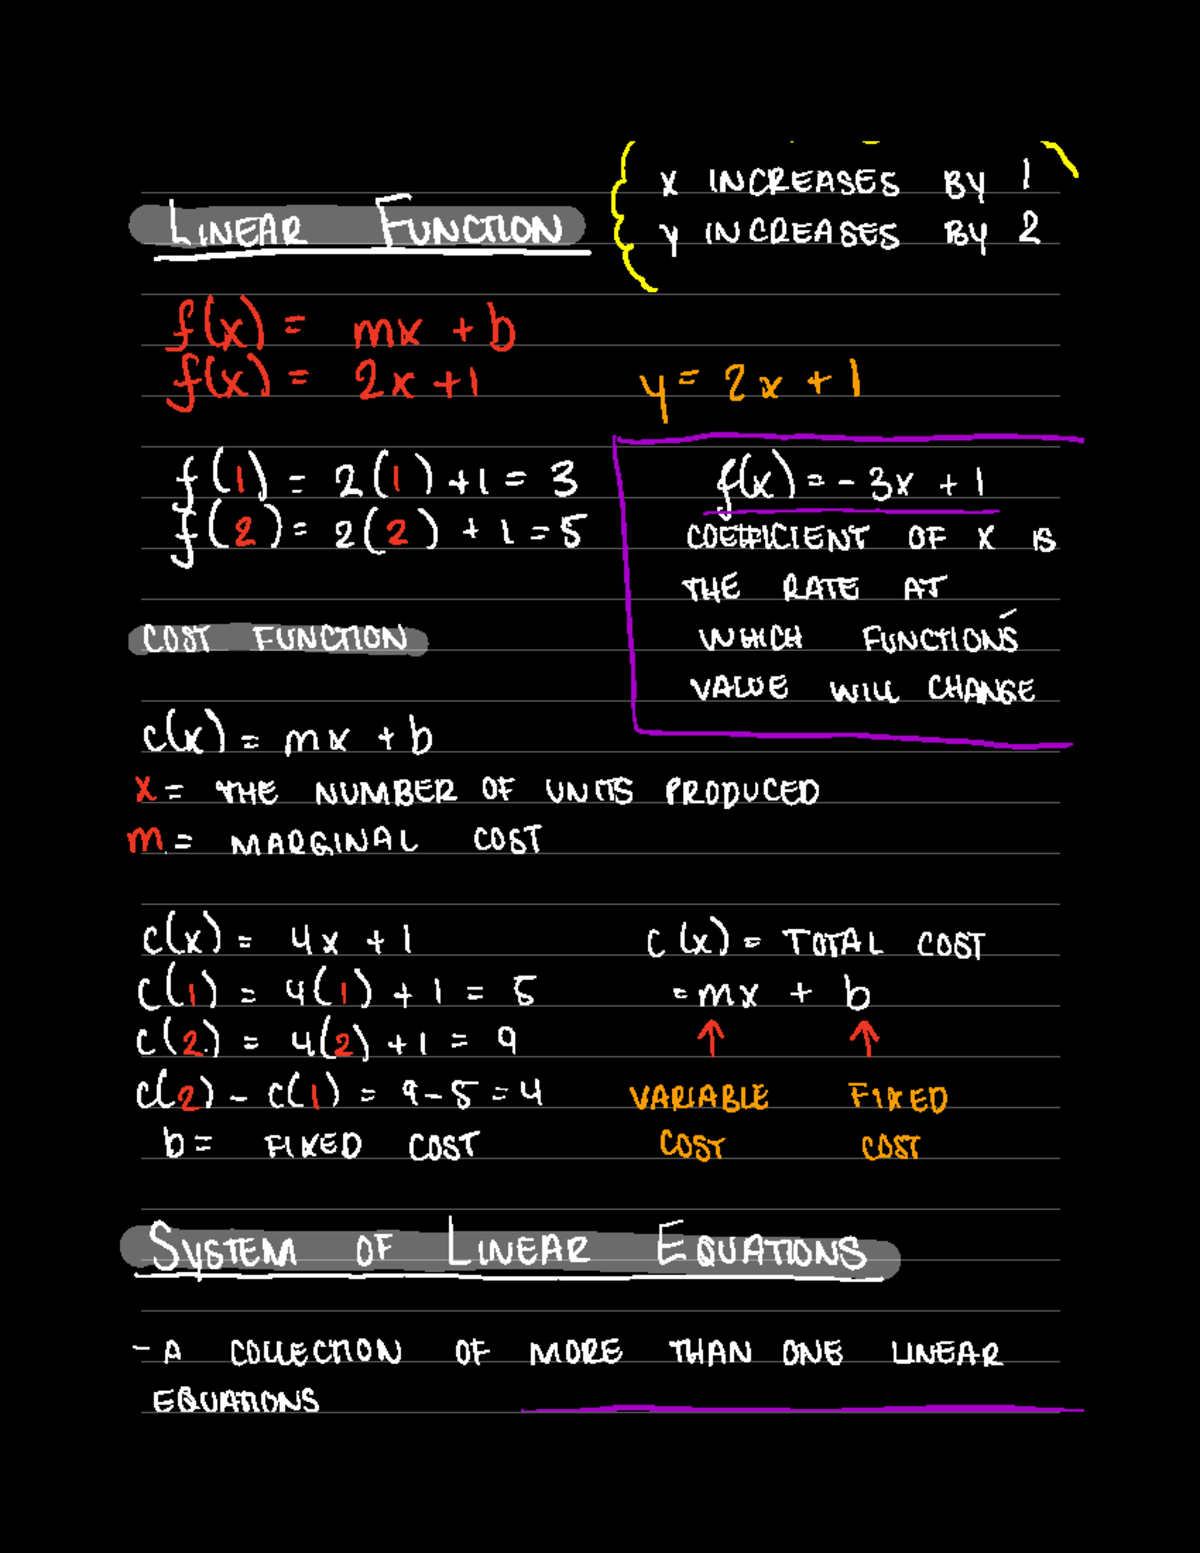 X INCREASES BY 1
Y INCREASES BY 2
LINEAR FUNCTION
f(x) = mx + b
f(x) = 2x + 1
y = 2x + 1
f(1) = 2(1) + 1 = 3
f(2) = 2(2) + 1 = 5
f(x) = -3x + 1
COEFFICIENT OF X IS
THE RATE AT
WHICH FUNCTION'S
VALUE WILL CHANGE
COST FUNCTION
C(x) = mx + b
X = THE NUMBER OF UNITS PRODUCED
m = MARGINAL COST
C(x) = 4x + 1
C(1) = 4(1) + 1 = 5
C(2) = 4(2) + 1 = 9
C(2) - C(1) = 9 - 5 = 4
b = FIXED COST
C(x) = TOTAL COST
= mx + b
↑ ↑
VARIABLE FIXED
COST COST
SYSTEM OF LINEAR EQUATIONS
- A COLLECTION OF MORE THAN ONE LINEAR
EQUATIONS